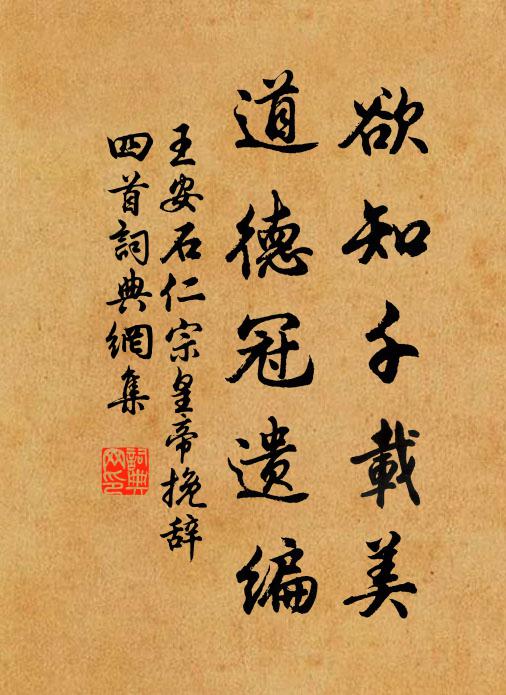 欲知千載美
道德冠遗编
王安石仁宗皇帝挽辞
四首詞典網集
詞典
网印